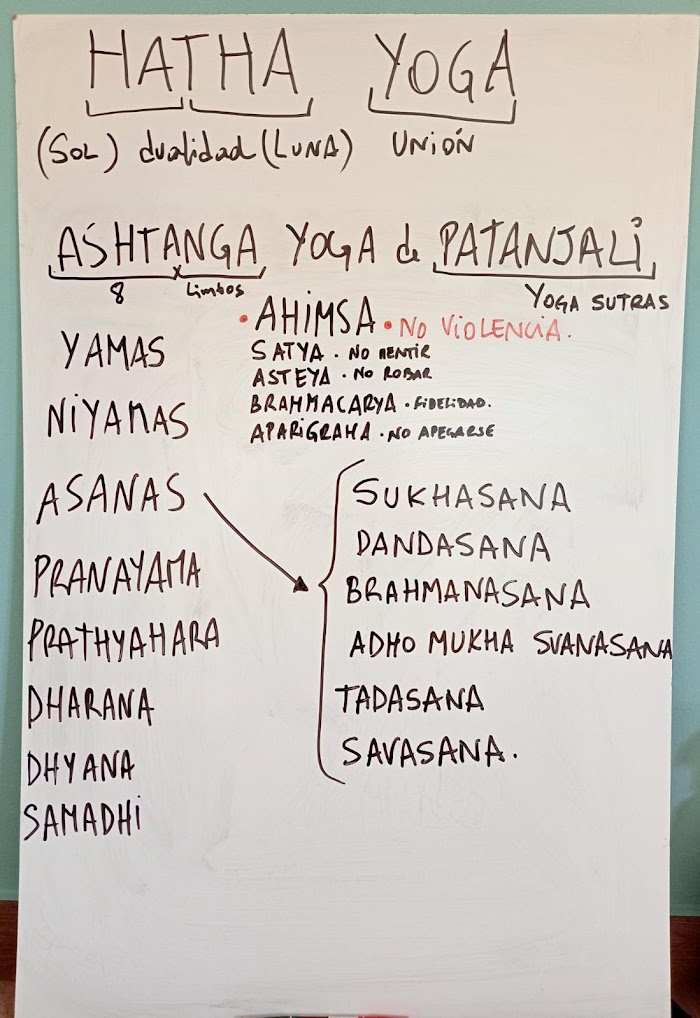 HATHA YOGA
(SOL) dualidad (LUNA) UNIÓN
ASHTANGA YOGA de PATANJALI
8 x Limbos
YOGA SUTRAS
YAMAS
NIYAMAS
ASANAS
PRANAYAMA
PRATHYAHARA
DHARANA
DHYANA
SAMADHI
• AHIMSA • NO VIOLENCIA.
SATYA · NO MENTIR
ASTEYA · NO ROBAR
BRAHMACARYA · FIDELIDAD.
APARIGRAHA · NO APEGARSE
SUKHASANA
DANDASANA
BRAHMANASANA
ADHO MUKHA SVANASANA
TADASANA
SAVASANA.